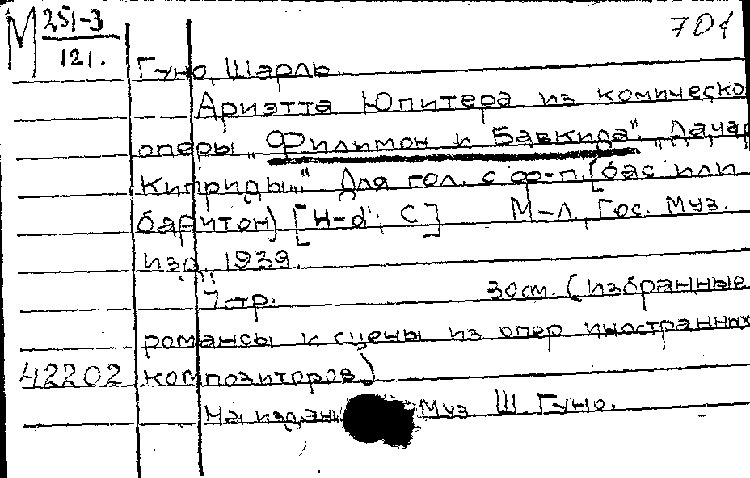 М 251-3
121.
701
Гуно, Шарль
Ариэтта Юпитера из комическо
оперы „Филимон и Бавкида". „Дача
Киприды..." Для гол. с ф-п. (бас или
баритон) [H-d'; C] М-Л, Гос. муз.
изд., 1939.
7 стр. 30 см. (избранные
романсы и сцены из опер иностранных
42202 композиторов)
На издан Муз Ш. Гуно.